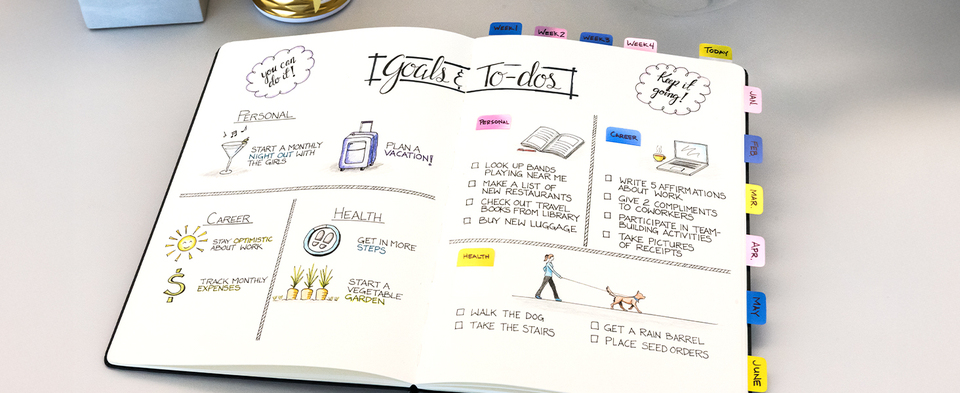 WEEK 1
WEEK 2
WEEK 3
WEEK 4
TODAY
you can
do it!
Goals & To-dos
Keep it
going!
PERSONAL
START A MONTHLY
NIGHT OUT WITH
THE GIRLS
PLAN A
VACATION!
CAREER
STAY OPTIMISTIC
ABOUT WORK
$
TRACK MONTHLY
EXPENSES
HEALTH
GET IN MORE
STEPS
START A
VEGETABLE
GARDEN
PERSONAL
LOOK UP BANDS
PLAYING NEAR ME
MAKE A LIST OF
NEW RESTAURANTS
CHECK OUT TRAVEL
BOOKS FROM LIBRARY
BUY NEW LUGGAGE
CAREER
WRITE 5 AFFIRMATIONS
ABOUT WORK
GIVE 2 COMPLIMENTS
TO COWORKERS
PARTICIPATE IN TEAM-
BUILDING ACTIVITIES
TAKE PICTURES
OF RECEIPTS
HEALTH
WALK THE DOG
TAKE THE STAIRS
GET A RAIN BARREL
PLACE SEED ORDERS
JAN.
FEB
MAR.
APR.
MAY
JUNE